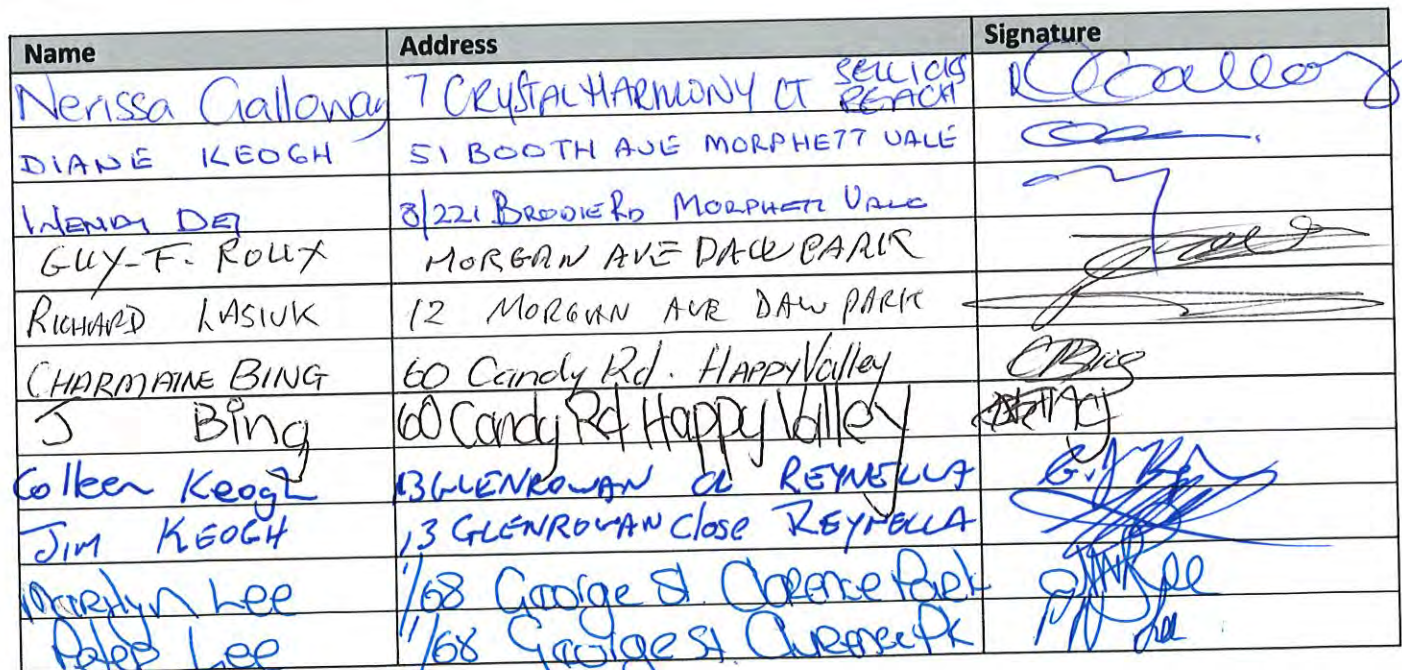 Name Address Signature
Nerissa Galloway 7 CRYSTAL HARMONY CT SELLICKS BEACH
DIANE KEOGH 51 BOOTH AVE MORPHETT VALE
WENDY DEJ 8/221 BRODIE RD MORPHETT VALE
GUY-F. ROUX MORGAN AVE DAW PARK
RICHARD LASIUK 12 MORGAN AVE DAW PARK
CHARMAINE BING 60 Candy Rd. HAPPY Valley CBing
J Bing 60 Candy Rd Happy Valley
Colleen Keogh 13 GLENROWAN CL REYNELLA
JIM KEOGH 13 GLENROWAN Close REYNELLA
Marilyn Lee 1/68 George St. Clarence Park
Peter Lee 1/68 George St. Clarence Pk